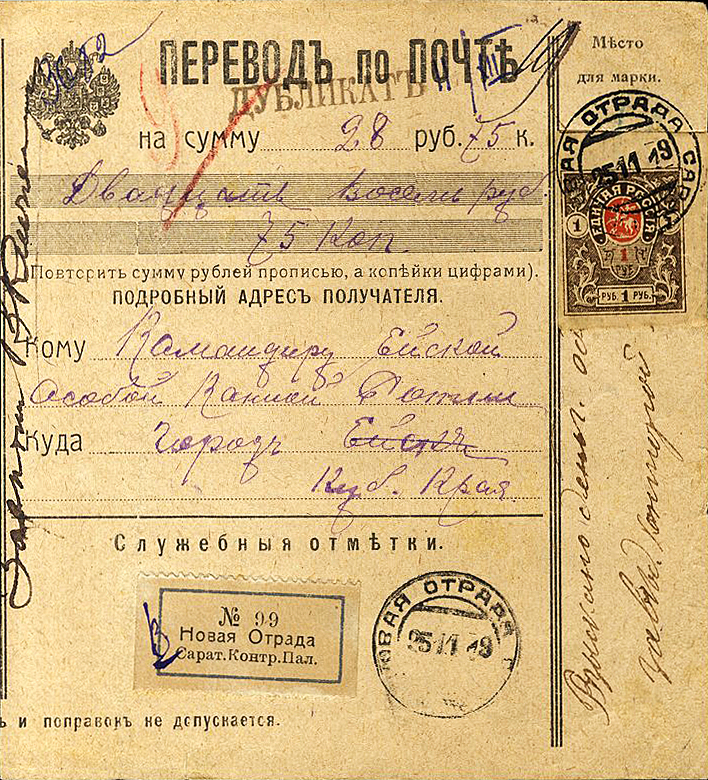 ПЕРЕВОДЪ по ПОЧТѢ
ДУБЛИКАТЪ
Мѣсто
для марки.
на сумму 28 руб. 75 к.
Двадцать восемь руб.
75 Коп
(Повторить сумму рублей прописью, а копѣйки цифрами).
ПОДРОБНЫЙ АДРЕСЪ ПОЛУЧАТЕЛЯ.
Кому Командиру Ейской
Особой Конной Роты
Куда городъ Ейскъ
Куб. Края
НОВАЯ ОТРАДА САРАТ
25 11 19
ЕДИНАЯ РОССІЯ
1
1
1
РУБ
РУБ. 1 РУБ.
Служебныя отмѣтки.
№ 99
Новая Отрада
Сарат.Контр.Пал.
ОВАЯ ОТРАДА
25 11 19
ъ и поправокъ не допускается.
Взыскано ден.